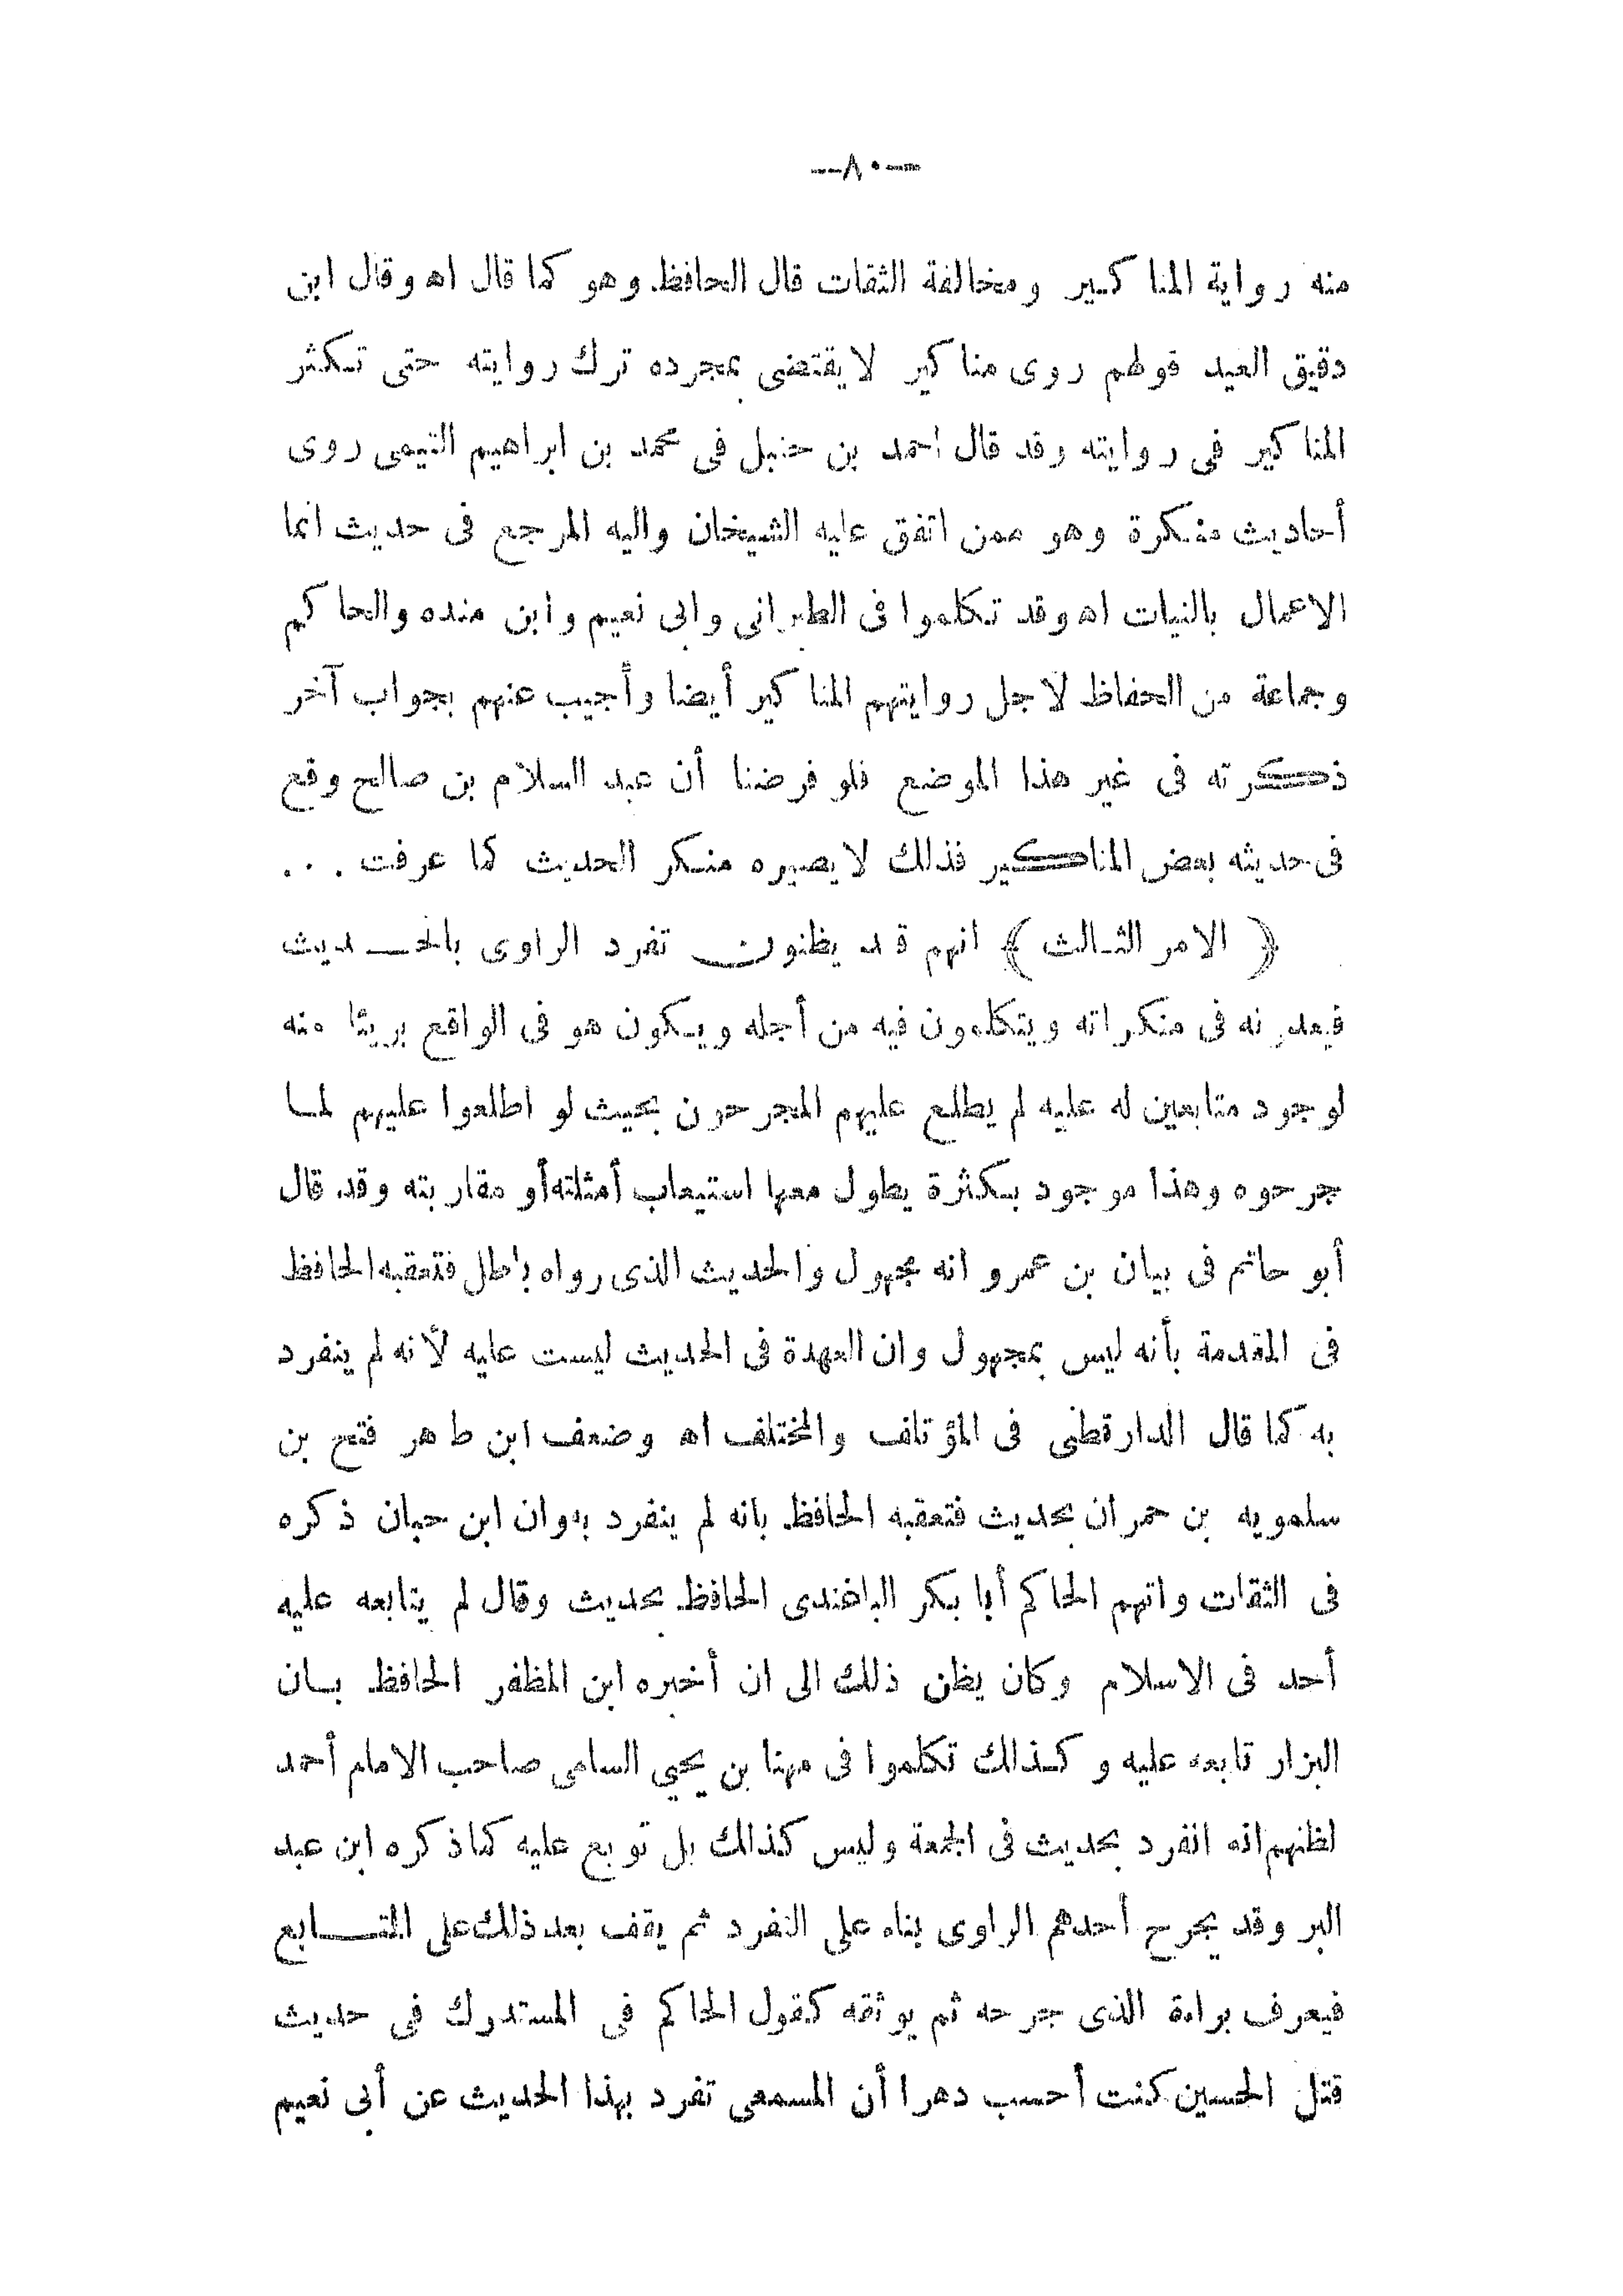 —٨٠—
منه رواية المناكير ومخالفة الثقات قال الحافظ وهو كما قال اه وقال ابن
دقيق العيد قولهم روى مناكير لا يقتضى بمجرده ترك روايته حتى تكثر
المناكير فى روايته وقد قال احمد بن حنبل فى محمد بن ابراهيم التيمى روى
أحاديث منكرة وهو ممن اتفق عليه الشيخان واليه المرجع فى حديث انما
الاعمال بالنيات اه وقد تكلموا فى الطبرانى وابى نعيم وابن منده والحاكم
وجماعة من الحفاظ لاجل روايتهم المناكير أيضا وأجيب عنهم بجواب آخر
ذكرته فى غير هذا الموضع فلو فرضنا أن عبد السلام بن صالح وقع
فى حديثه بعض المناكير فذلك لا يصيره منكر الحديث كما عرفت . . .
﴿ الامر الثالث ﴾ انهم قد يظنون تفرد الراوى بالحديث
فيعدونه فى منكراته ويتكلمون فيه من أجله ويكون هو فى الواقع بريئا منه
لوجود متابعين له عليه لم يطلع عليهم المجرحون بحيث لو اطلعوا عليهم لما
جرحوه وهذا موجود بكثرة يطول معها استيعاب أمثلته أو مقاربته وقد قال
أبو حاتم فى بيان بن عمرو انه مجهول والحديث الذى رواه باطل فتعقبه الحافظ
فى المقدمة بأنه ليس بمجهول وان العهدة فى الحديث ليست عليه لأنه لم ينفرد
به كما قال الدارقطنى فى المؤتلف والمختلف اه وضعف ابن طاهر فتح بن
سلمويه بن حمران بحديث فتعقبه الحافظ بانه لم ينفرد به وان ابن حبان ذكره
فى الثقات واتهم الحاكم أبا بكر الباغندى الحافظ بحديث وقال لم يتابعه عليه
أحد فى الاسلام وكان يظن ذلك الى ان أخبره ابن المظفر الحافظ بان
البزار تابعه عليه وكذلك تكلموا فى مهنا بن يحيي السامى صاحب الامام أحمد
لظنهم انه انفرد بحديث فى الجمعة وليس كذلك بل توبع عليه كما ذكره ابن عبد
البر وقد يجرح أحدهم الراوى بناه على التفرد ثم يقف بعد ذلك على المتابع
فيعرف براءة الذى جرحه ثم يوثقه كقول الحاكم فى المستدرك فى حديث
قتل الحسين كنت أحسب دهرا أن المسمعى تفرد بهذا الحديث عن أبى نعيم